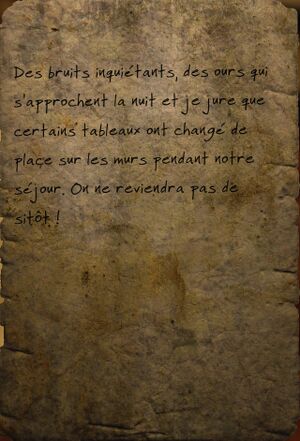 Des bruits inquiétants, des ours qui
s'approchent la nuit et je jure que
certains tableaux ont changé de
place sur les murs pendant notre
séjour. On ne reviendra pas de
sitôt !